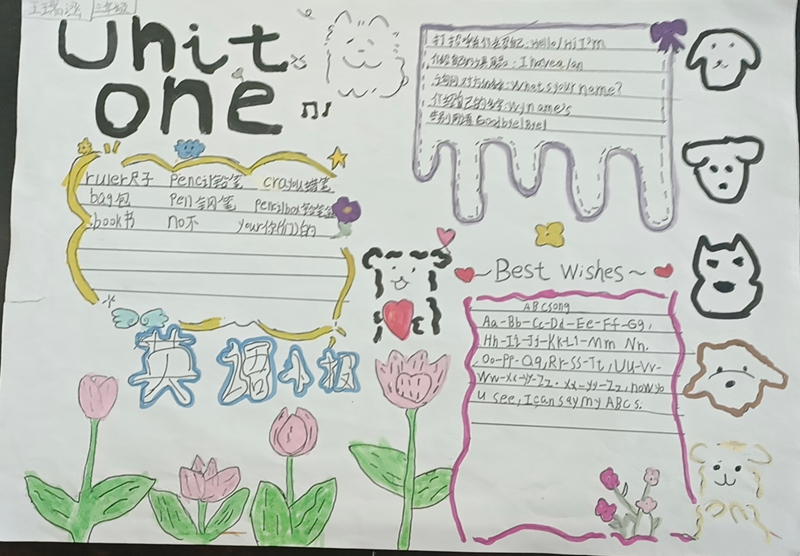 三年级
Unit
one
打招呼并介绍自己: Hello/Hi I'm
介绍自己的文具用品: I have a/an
询问对方的名字: What's your name?
介绍自己的名字: My name's
告别用语 Goodbye/Bye!
ruler尺子 pencil铅笔 crayon蜡笔
bag包 pen钢笔 pencilbox铅笔盒
book书 no不 your你(们)的
Best Wishes
ABCsong
Aa-Bb-Cc-Dd-Ee-Ff-Gg,
Hh-Ii-Jj-Kk-Ll-Mm Nn.
Oo-Pp-Qq, Rr-Ss-Tt, UU-Vv-
Ww-xx-yy-Zz. Xx-yy-Zz, now yo
u see, I can say my ABCs.
英语小报